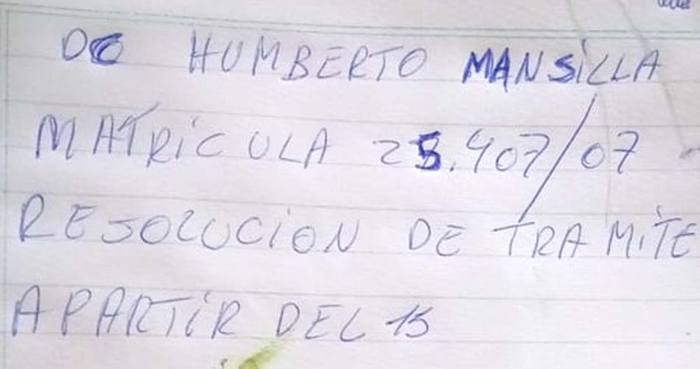 DO HUMBERTO MANSILLA
MATRICULA 25.407/07
RESOLUCION DE TRAMITE
APARTIR DEL 15